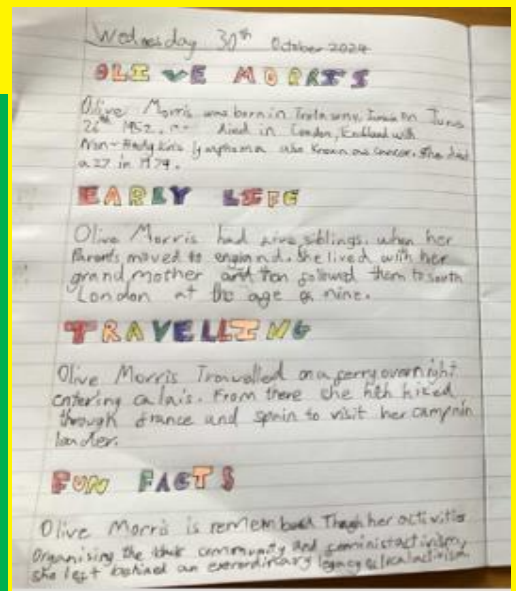 Wednesday 30th October 2024
OLIVE MORRIS
Olive Morris was born in on June
26th 1952. died in London, England with
Non-Hodgkins lymphoma also known as cancer. She died
a 27 in 1979.
EARLY LIFE
Olive Morris had five siblings. when her
Parents moved to england. She lived with her
grandmother and then followed them to south
London at the age of nine.
TRAVELLING
Olive Morris Travelled on a ferry overnight
entering calais. From there she hith hiked
through france and spain to visit her
FUN FACTS
Olive Morris is her activities
Organising the community and
she left behined an legacy of local activism